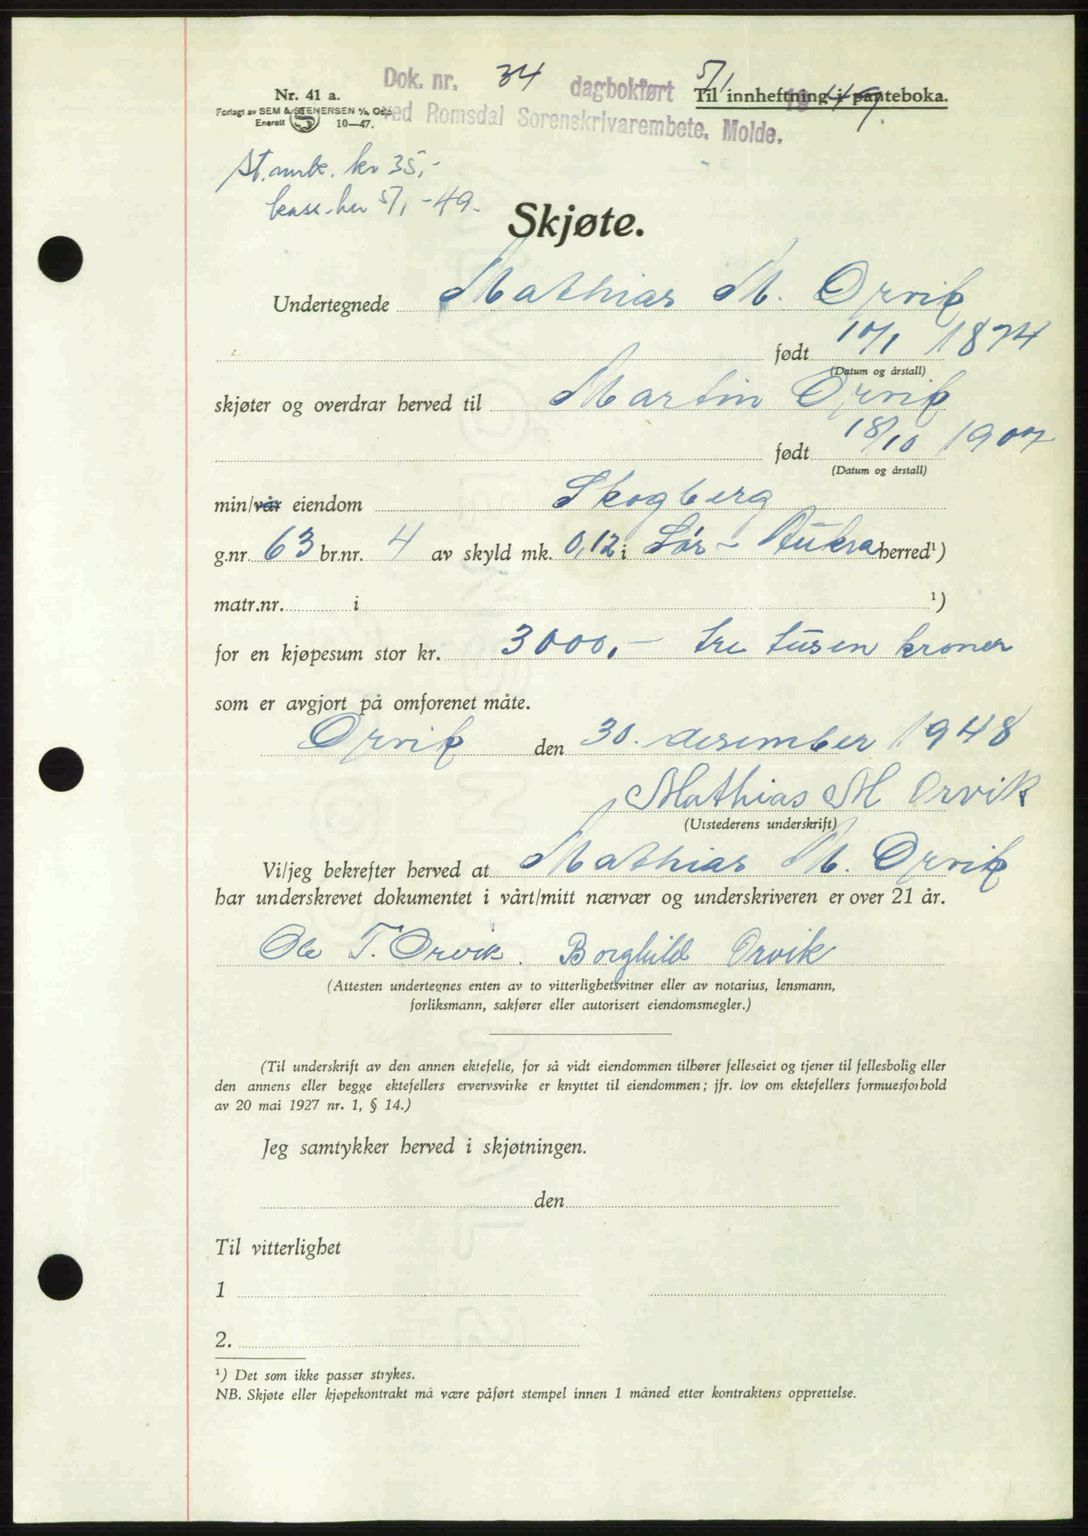 Dok. nr. 34 dagbokført 5/1 1949
Nr. 41 a. Til innheftning i panteboka.
Forlagt av SEM & STENERSEN A/S, Oslo
Enerett 10—47.
ved Romsdal Sorenskrivarembete, Molde.
St.merk. kr 35,-
kass. her 5/1-49.
Skjøte.
Undertegnede Mathias M. Orvik
født 10/1 1874
(Datum og årstall)
skjøter og overdrar herved til Martin Orvik
født 18/10 1907
(Datum og årstall)
min/vår eiendom Skogberg
g.nr. 63 br.nr. 4 av skyld mk. 0,12 i Sør-Aukra herred¹)
matr.nr. i ¹)
for en kjøpesum stor kr. 3000,- tre tusen kroner
som er avgjort på omforenet måte.
Orvik den 30. desember 1948
Mathias M Orvik
(Utstederens underskrift)
Vi/jeg bekrefter herved at Mathias M. Orvik
har underskrevet dokumentet i vårt/mitt nærvær og underskriveren er over 21 år.
Ole T. Orvik. Borghild Orvik
(Attesten undertegnes enten av to vitterlighetsvitner eller av notarius, lensmann,
forliksmann, sakfører eller autorisert eiendomsmegler.)
(Til underskrift av den annen ektefelle, for så vidt eiendommen tilhører felleseiet og tjener til fellesbolig eller
den annens eller begge ektefellers ervervsvirke er knyttet til eiendommen; jfr. lov om ektefellers formuesforhold
av 20 mai 1927 nr. 1, § 14.)
Jeg samtykker herved i skjøtningen.
den
Til vitterlighet
1
2.
¹) Det som ikke passer strykes.
NB. Skjøte eller kjøpekontrakt må være påført stempel innen 1 måned etter kontraktens opprettelse.